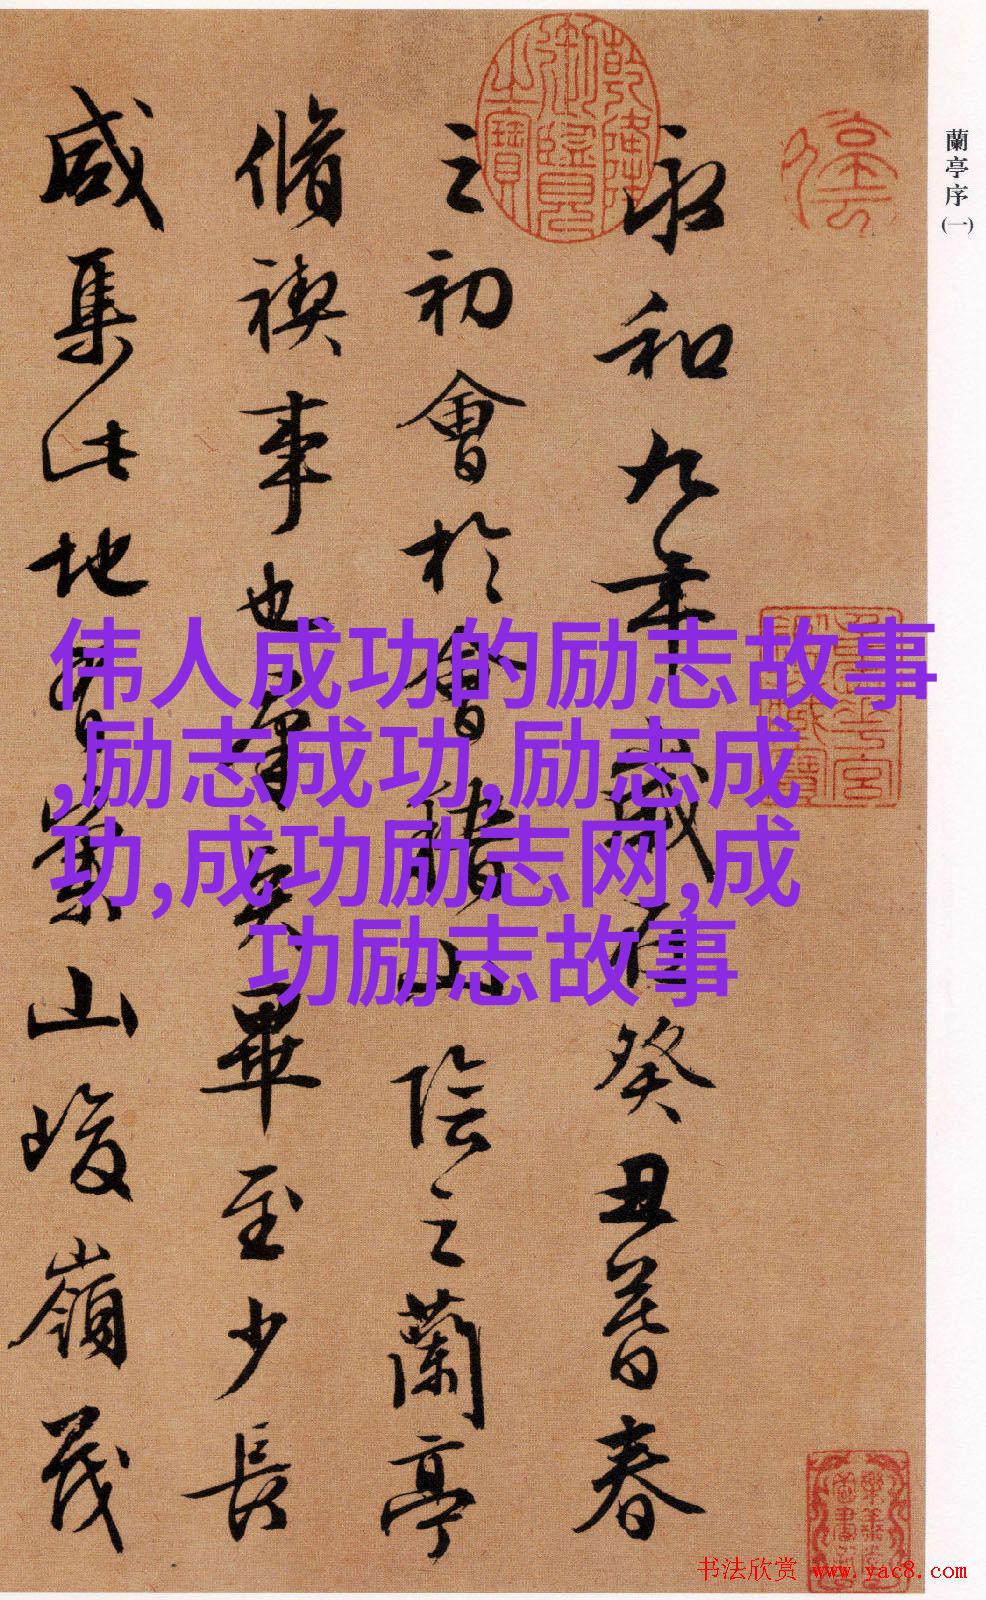 蘭亭序(一)
乾隆御覽之寶
永和九年歲在癸丑暮春
之初會於會稽山陰之蘭亭
脩禊事也群賢畢至少長
咸集此地有崇山峻嶺茂
伟人成功的励志故事
,励志成功,励志成
功,成功励志网,成
功励志故事
书法欣赏 www.yac8.com